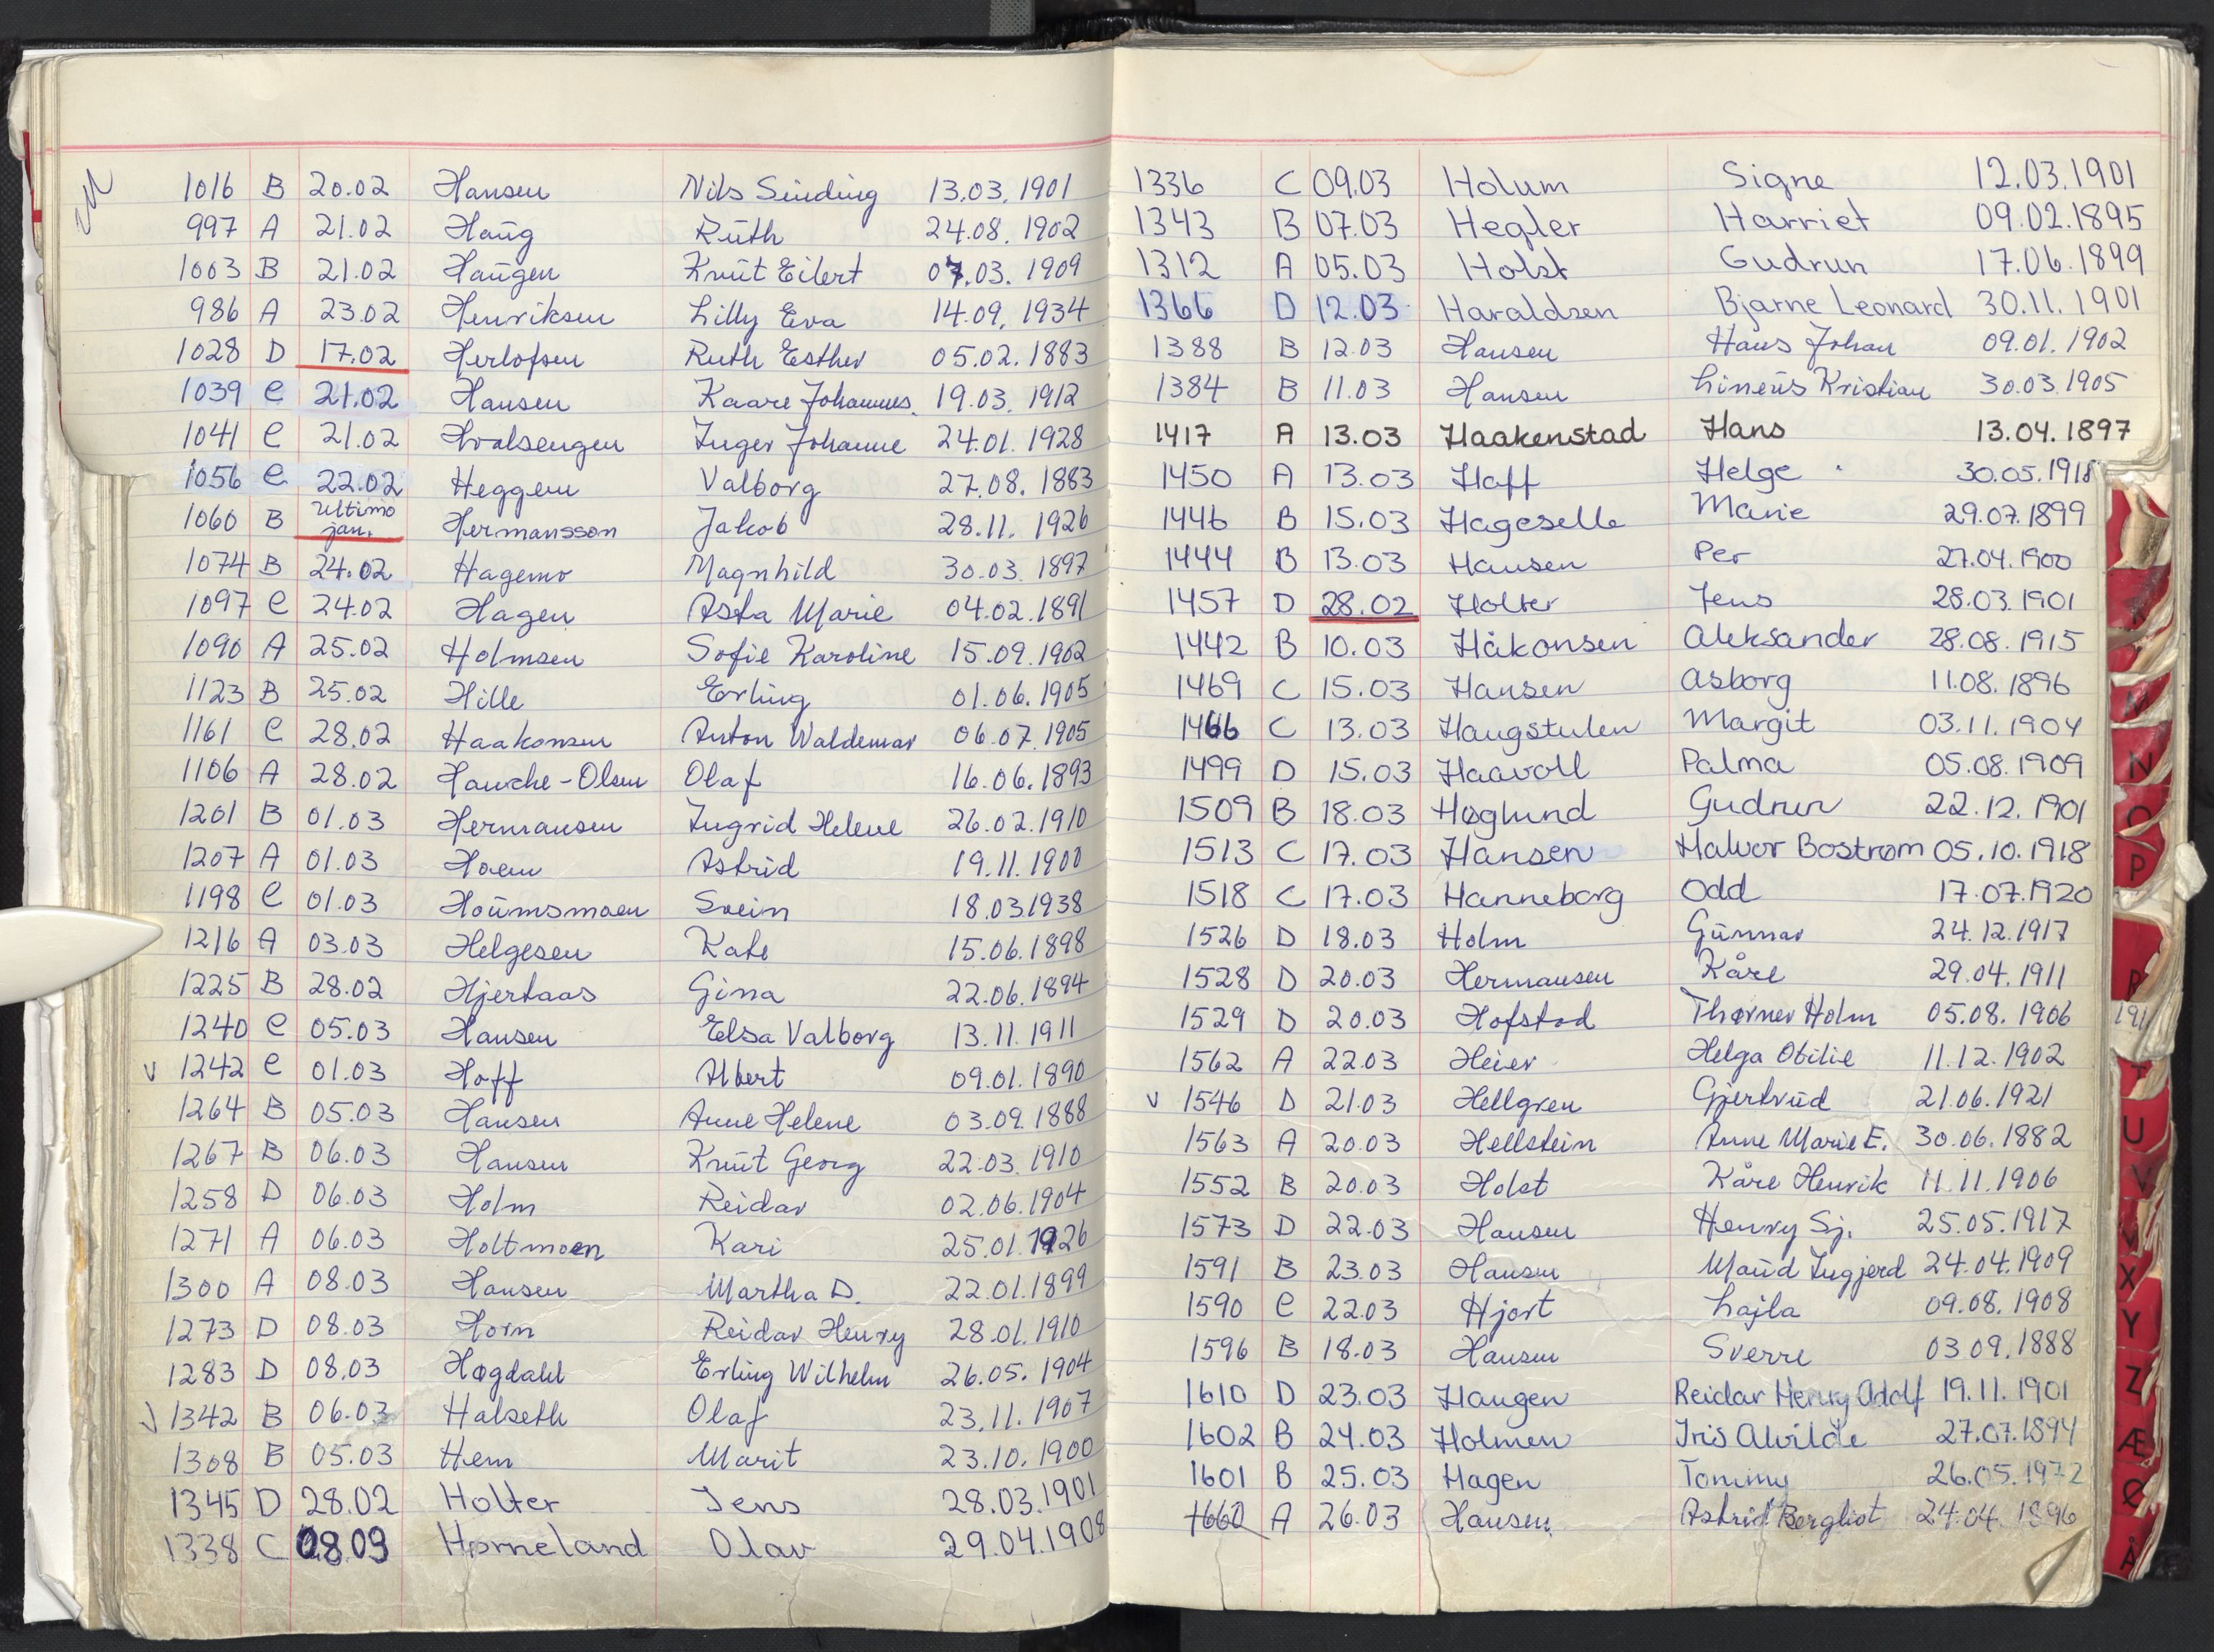 1016 B 20.02 Hansen Nils Sinding 13.03.1901
997 A 21.02 Haug Ruth 24.08.1902
1003 B 21.02 Haugen Knut Eilert 07.03.1909
986 A 23.02 Henriksen Lilly Eva 14.09.1934
1028 D 17.02 Herlofsen Ruth Esther 05.02.1883
1039 C 21.02 Hansen Kaare Johannes 19.03.1912
1041 C 21.02 Hvalsengen Inger Johanne 24.01.1928
1056 C 22.02 Heggem Valborg 27.08.1883
1060 B Ultimo jan. Hermansson Jakob 28.11.1926
1074 B 24.02 Hagemo Magnhild 30.03.1897
1097 C 24.02 Hagen Asta Marie 04.02.1891
1090 A 25.02 Holmsen Sofie Karoline 15.09.1902
1123 B 25.02 Hille Erling 01.06.1905
1161 C 28.02 Haakonsen Anton Waldemar 06.07.1905
1106 A 28.02 Hauche-Olsen Olaf 16.06.1893
1201 B 01.03 Hermansen Ingrid Helene 26.02.1910
1207 A 01.03 Hoem Astrid 19.11.1900
1198 C 01.03 Houmsmoen Svein 18.03.1938
1216 A 03.03 Helgesen Kate 15.06.1898
1225 B 28.02 Hjertaas Gina 22.06.1894
1240 C 05.03 Hansen Elsa Valborg 13.11.1911
v 1242 C 01.03 Hoff Albert 09.01.1890
1264 B 05.03 Hansen Anne Helene 03.09.1888
1267 B 06.03 Hansen Knut Georg 22.03.1910
1258 D 06.03 Holm Reidar 02.06.1904
1271 A 06.03 Holtmoen Kari 25.01.1926
1300 A 08.03 Hansen Martha D. 22.01.1899
1273 D 08.03 Horn Reidar Henry 28.01.1910
1283 D 08.03 Høgdahl Erling Wilhelm 26.05.1904
v 1342 B 06.03 Halseth Olaf 23.11.1907
1308 B 05.03 Hem Marit 23.10.1900
1345 D 28.02 Holter Jens 28.03.1901
1338 C 08.03 Hørneland Olav 29.04.1908
1336 C 09.03 Holum Signe 12.03.1901
1343 B 07.03 Hegler Harriet 09.02.1895
1312 A 05.03 Holst Gudrun 17.06.1899
1366 D 12.03 Haraldsen Bjarne Leonard 30.11.1901
1388 B 12.03 Hansen Hans Johan 09.01.1902
1384 B 11.03 Hansen Lineus Kristian 30.03.1905
1417 A 13.03 Haakenstad Hans 13.04.1897
1450 A 13.03 Hoff Helge 30.05.1918
1446 B 15.03 Hageselle Marie 29.07.1899
1444 B 13.03 Hansen Per 27.04.1900
1457 D 28.02 Holter Jens 28.03.1901
1442 B 10.03 Håkonsen Aleksander 28.08.1915
1469 C 15.03 Hansen Asborg 11.08.1896
1466 C 13.03 Haugstulen Margit 03.11.1904
1499 D 15.03 Haavoll Palma 05.08.1909
1509 B 18.03 Høglund Gudrun 22.12.1901
1513 C 17.03 Hansen Halvor Bostrøm 05.10.1918
1518 C 17.03 Hanneborg Odd 17.07.1920
1526 D 18.03 Holm Gunnar 24.12.1917
1528 D 20.03 Hermansen Kåre 29.04.1911
1529 D 20.03 Hofstad Thorner Holm 05.08.1906
1562 A 22.03 Heier Helga Otilie 11.12.1902
v 1546 D 21.03 Hellgren Gjertrud 21.06.1921
1563 A 20.03 Hellstein Anne Marie E. 30.06.1882
1552 B 20.03 Holst Kåre Henrik 11.11.1906
1573 D 22.03 Hansen Henry Sj. 25.05.1917
1591 B 23.03 Hansen Maud Ingjerd 24.04.1909
1590 C 22.03 Hjort Lajla 09.08.1908
1596 B 18.03 Hansen Sverre 03.09.1888
1610 D 23.03 Haugen Reidar Henry Adolf 19.11.1901
1602 B 24.03 Holmen Iris Alvilde 27.07.1894
1601 B 25.03 Hagen Tommy 26.05.1972
1660 A 26.03 Hansen Astrid Bergliot 24.04.1896
M
N
O
P
R
191
T
U
V
X
Y
Z
Æ
Ø
Å